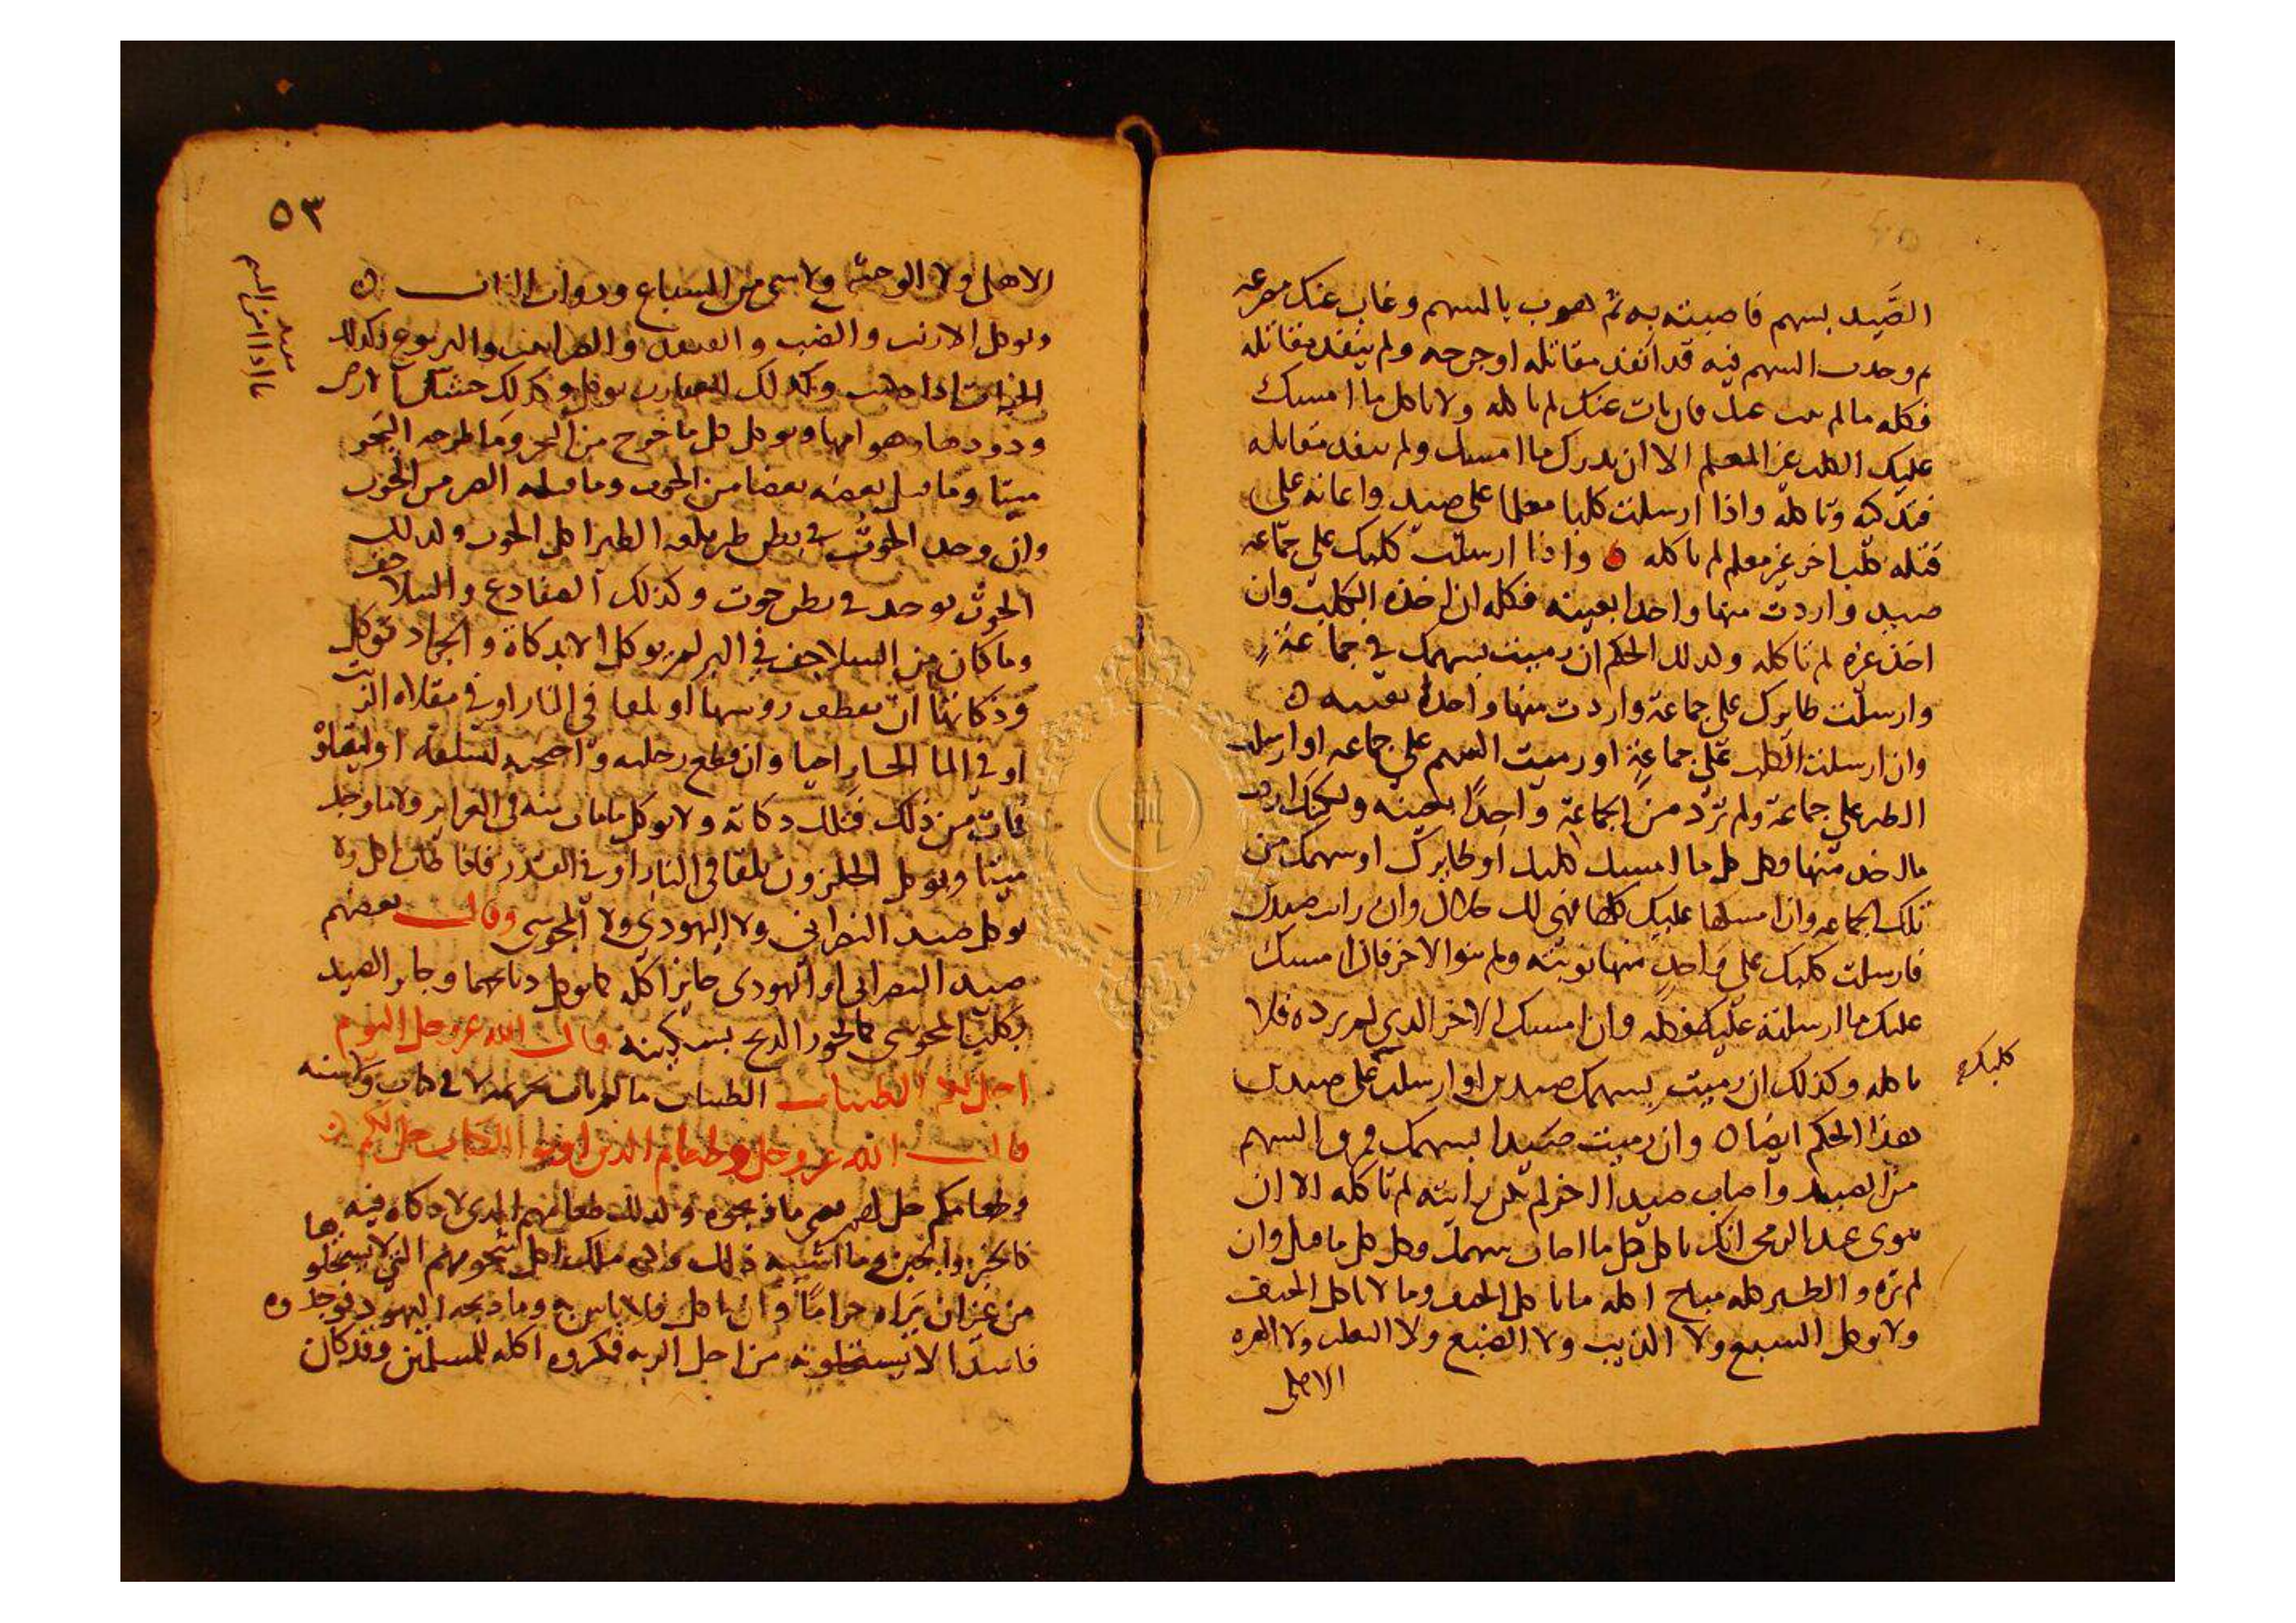 الصَّيد بسهم فاصبته به ثم هوب بالسهم وغاب عنك مصرعه
ثم وجدت السهم فيه قد انفذ مقاتله او جرحه ولم ينفذ مقاتله
فكله ما لم يبت عنك فان بات عنك لم تاكله ولا تاكل ما امسك
عليك الكلب غير المعلم الا ان تدرك ما امسك ولم ينفذ مقاتله
فتذكيه وتاكله واذا ارسلت كلبا معلما على صيد واعانه على
قتله كلب اخر غير معلم لم تاكله ه واذا ارسلت كلبك على جماعه
صيد واردت منها واحدا بعينه فكله ان اخذه الكلب وان
اخذ غيره لم تاكله وكذلك الحكم ان رميت بسهمك في جماعةٍ
وارسلت طايرك على جماعة واردت منها واحدا بعينه ه
وان ارسلت الكلب على جماعةٍ او رميت السهم على جماعه او ارسلت
الطير على جماعة ولم ترد من الجماعة واحِدًا بعينه ولكنك اردت
ما اخذ منها فكل كل ما امسك كلبك او طايرك او سهمك من
تلك الجماعه وان امسكها عليك كلها فهي لك حلال وان رايت صيدين
فارسلت كلبك على واحدٍ منها نويته ولم تنو الاخر فان امسك
عليك ما ارسلته عليه فكله وان امسك الاخر الذي لم ترده فلا
تاكله وكذلك ان رميت بسهمك صيدين او ارسلت على صيدين
كلبك
هذا الحكم ايضا ه وان رميت صيدا بسهمك فمرق السهم
من الصيد واصاب صيدا اخر لم تكن رايته لم تاكله الا ان
تنوي عند الرمي انك تاكل كل ما اصاب سهمك وكل كل ما قتل وان
لم تره والطير كله مباح اكله ما ياكل الجيف وما لا ياكل الجيف
ولا يوكل السبع ولا الذيب ولا الضبع ولا الثعلب ولا الهره
الاهلي
٥٣
الاهلي ولا الوحشي ولا شي من السباع وذوات الناب ه
ويوكل الارنب والضب والقنفد والضرابيب واليربوع وكذلك
الحيات اذا ذكيت وكذلك العقارب يوكل وكذلك خشاش الارض
ودودها وهوامها ويوكل كل ما خرج من البحر وما طرحه البحر
ميتا وما قتل بعضه بعضا من الحوت وما قتله الصر من الحوت
وان وجد الحوت في بطن طير بلعه الطير اكل الحوت وكذلك
الحوت يوجد في بطن حوت وكذلك الضفادع والسلاحف
وما كان من السلاحف في البر لم يوكل الا بذكاة والجراد توكل
وذكاتها ان تقطف روسها او تلقا في النار او في مقلاه الزيت
او في الما الحار احيا وان قطع رجليه واجنحته لتسلقه او ليقلاه
فمات من ذلك فتلك ذكاته ولا يوكل ما مات منه في الغراير ولا ما وجد
ميتا ويوكل الحلزون يلقا في النار او في القدر فاذا طاب اكل ولا
يوكل صيد النصراني ولا اليهودي ولا المجوسي وقال بعضهم
صيد النصراني او اليهودي جايز اكله كما توكل ذبايحهما وجايز الصيد
بكلب المجوسي كما يجوز الذبح بسكينه قال الله عز وجل اليوم
احل لكم الطيبات الطيبات ما لم يات تحريمه لا في كتاب ولا سنه
قال الله عز وجل وطعام الذين اوتوا الكتاب حل لكم ه
وطعامكم حل لهم يعني ما ذبحوه وكذلك طعامهم الذي لا ذكاه فيه
كالخبز والجبن وما اشبه ذلك وكره مالك اكل شحومهم التي لا يستحلونها
من غير ان يراه حراما وان تاكل فلا باس به وما ذبحه اليهود فوجدوه
فاسدا لا يستحلونه من اجل الريه فمكروه اكله للمسلمين وقد كان